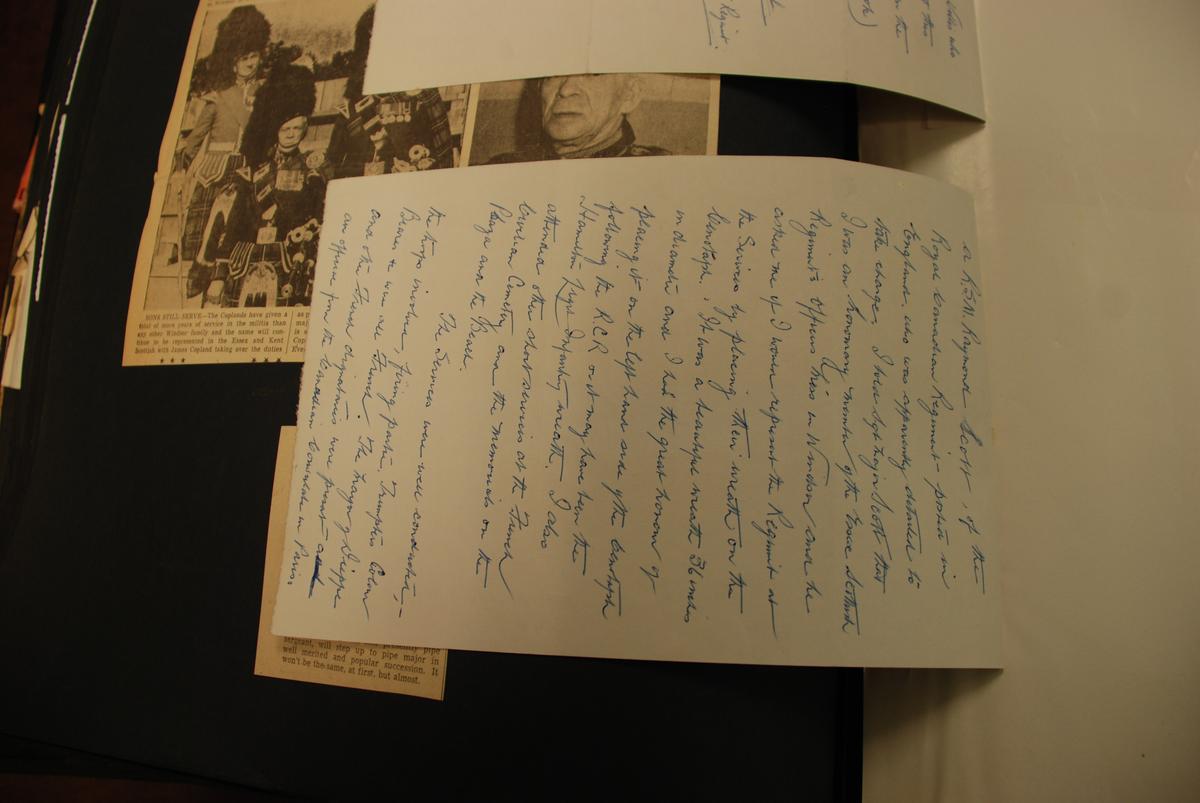 a R.S.M. Raymond Scott, of the
Royal Canadian Regiment - posted in
England who was apparently detailed to
take charge. I told Sgt Major Scott that
I was an honorary member of the Essex Scottish
Regiments Officers Mess in Windsor and he
asked me if I would represent the Regiment at
the Services by placing their wreath on the
Cenotaph. It was a beautiful wreath 36 inches
in diameter and I had the great honour of
placing it on the left hand side of the Cenotaph
following the RCR or it may have been the
Hamilton Light Infantry wreath. I also
attended other short services at the French
Civilian Cemetery and the memorials on the
Plage and the Beach.
The Services were well conducted, -
the troops involved, firing parties, Trumpets Colour
Bearers etc were all French. The Mayor of Dieppe
and other French dignitaries were present
an officer from the Canadian Consulate in Paris.
SONS STILL SERVE—The Coplands have given a
total of more years of service in the militia than
any other Windsor family and the name will con-
tinue to be represented in the Essex and Kent
Scottish with James Copland taking over the duties
as p
maj
is s
Cop
Eve
presently pipe
sergeant, will step up to pipe major in
well merited and popular succession. It
won't be the same, at first, but almost.
who
this
in the
Regiment.